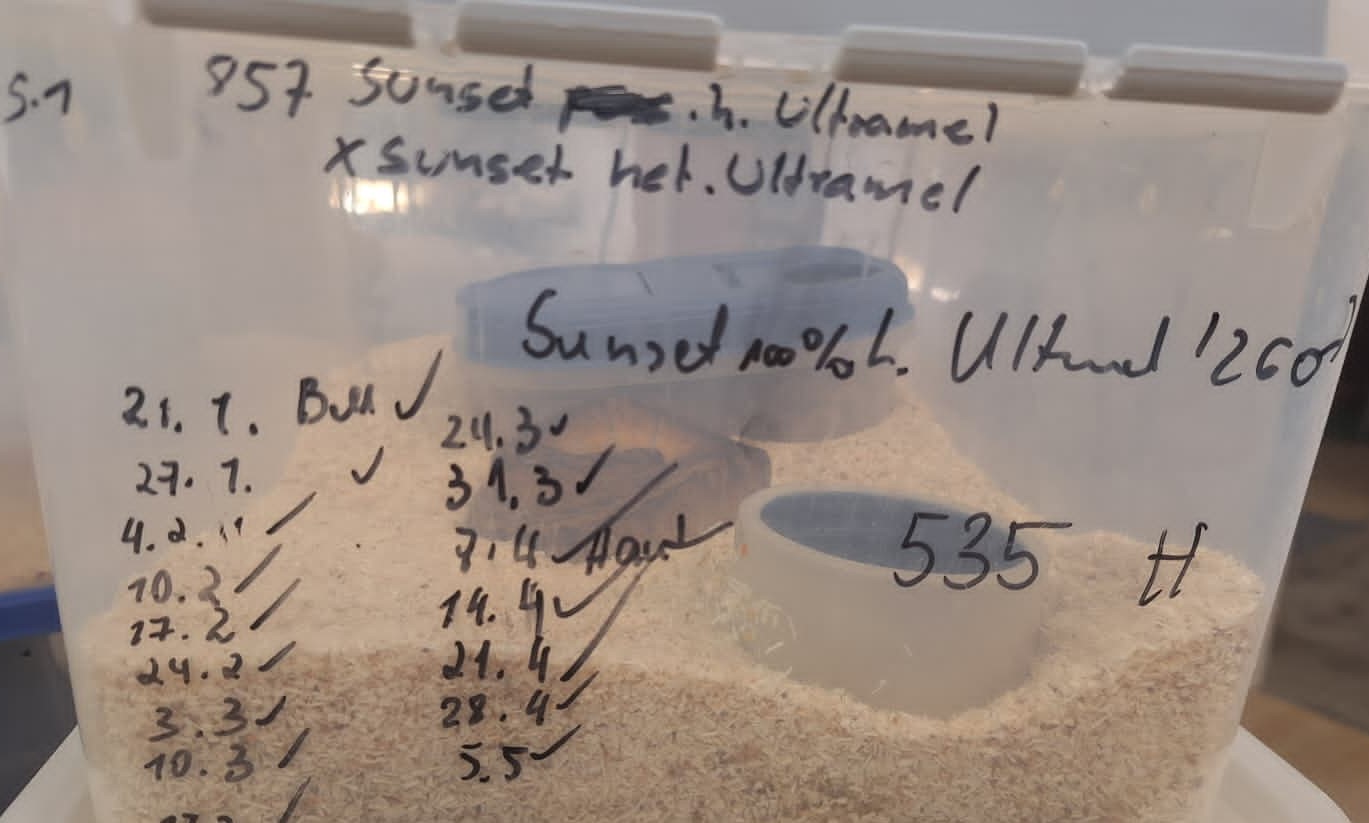 S.1
857 Sunset h. Ultramel
X Sunset het. Ultramel
Sunset 100% h. Ultramel '260
21. 1. ✓
27. 1. ✓
4. 2. "
10. 2
17. 2
24. 2
3. 3 ✓
10. 3
17.3
24. 3 ✓
31. 3 ✓
7. 4 Haut
14. 4 ✓
21. 4
28. 4 ✓
5.5 ✓
535 H